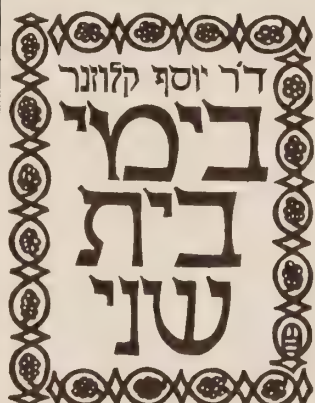 ד״ר יוסף קלוזנר
בימי
בית
שני